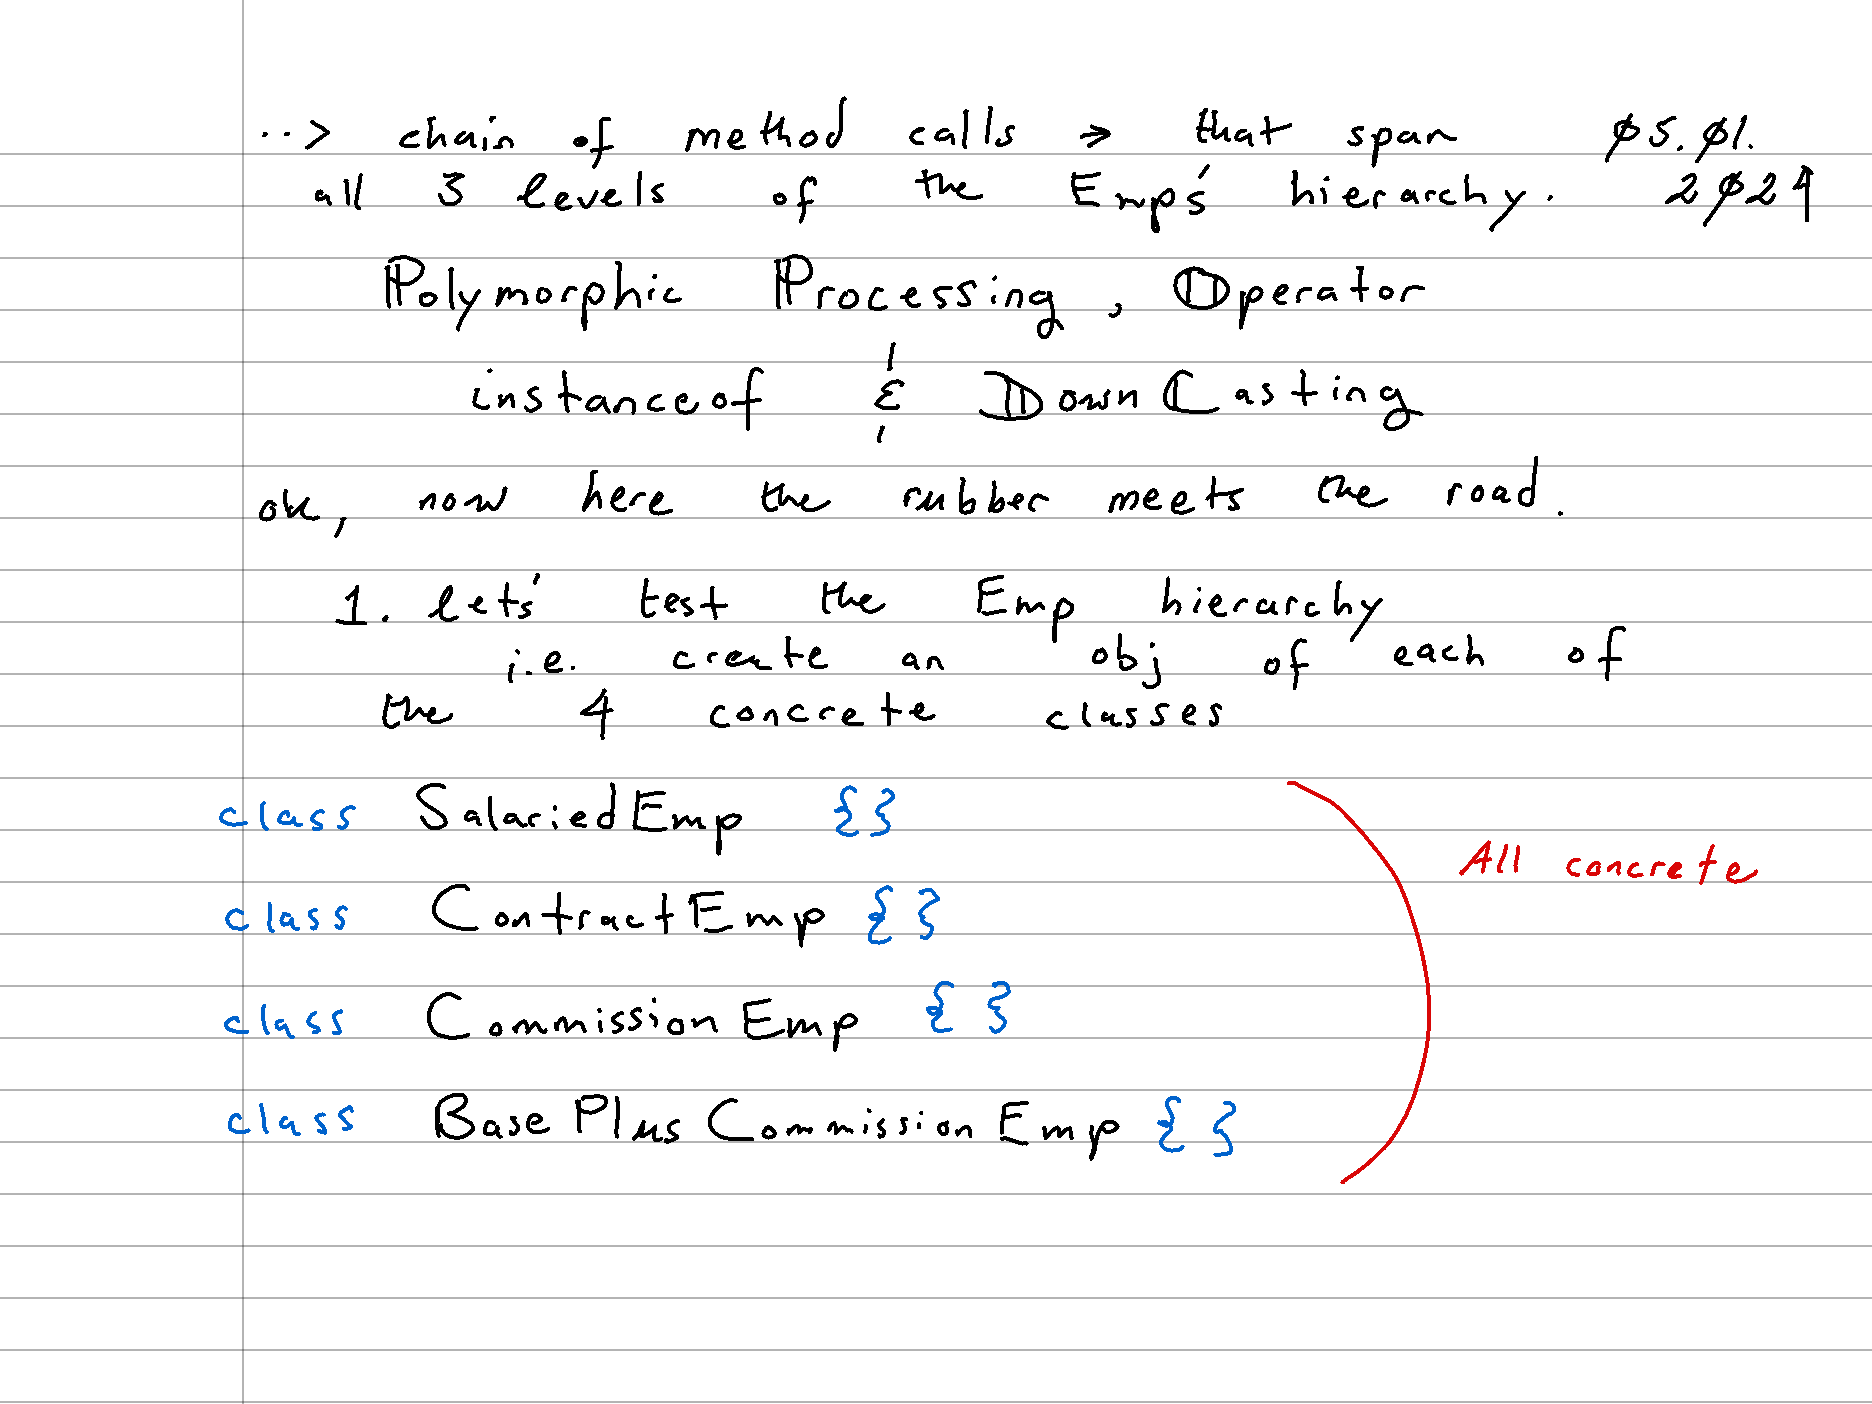 ..> chain of method calls → that span ø5.ø1.
all 3 levels of the Emp's hierarchy. 2ø24
Polymorphic Processing, Operator
instanceof & DownCasting
ok, now here the rubber meets the road.
1. lets' test the Emp hierarchy
i.e. create an obj of each of
the 4 concrete classes
class SalariedEmp {}
All concrete
class ContractEmp { }
class CommissionEmp { }
class BasePlusCommissionEmp { }